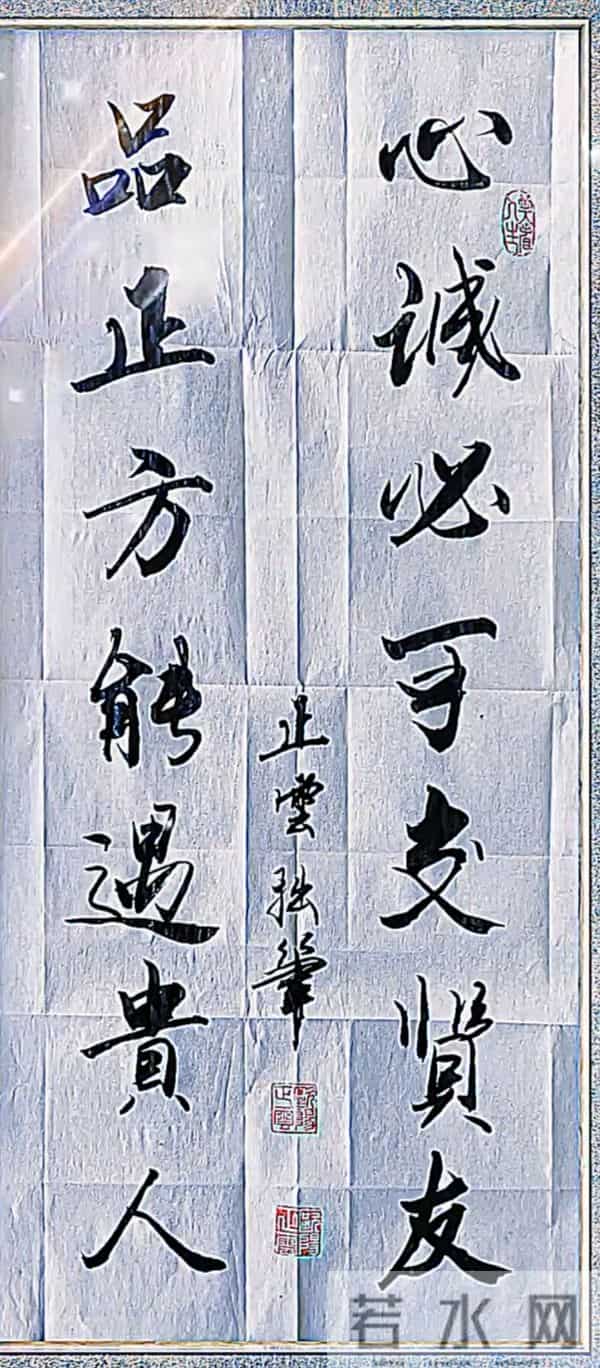 心诚必可交賢友
品正方能遇貴人
止雲拙筆
若水网